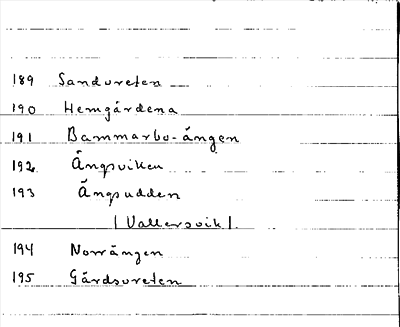 189 Sandvreten
190 Hemgärdena
191 Bammarbo-ängen
192 Ängsviken
193 Ängsudden
| Vallersvik |
194 Norrängen
195 Gärdsvreten